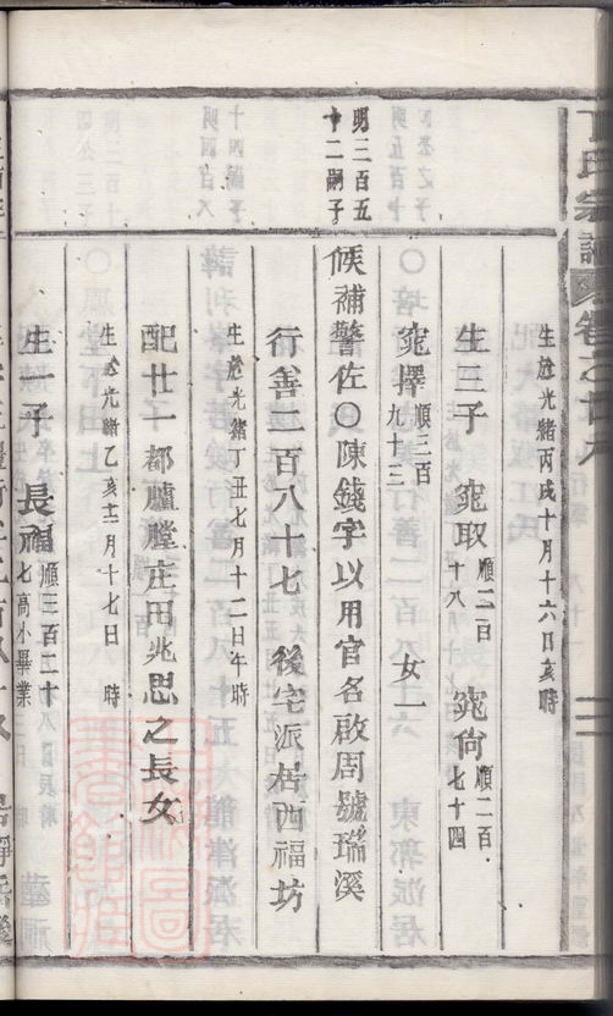 丁氏宗譜 卷之廿六
生於光緒丙戌十月十六日亥時
生三子 寃取順二百十八 寃尙順二百七十四
寃擇順三百九十三 女一
明三百五十二嗣子
候補警佐〇陳錢字以用官名啟周號瑞溪
行善二百八十七 後宅派居西福坊
生於光緒丁丑七月十二日午時
配廿一都臚膛庄田兆思之長女
生於光緒乙亥十二月十七日 時
生一子 長福順三百二十七高小畢業